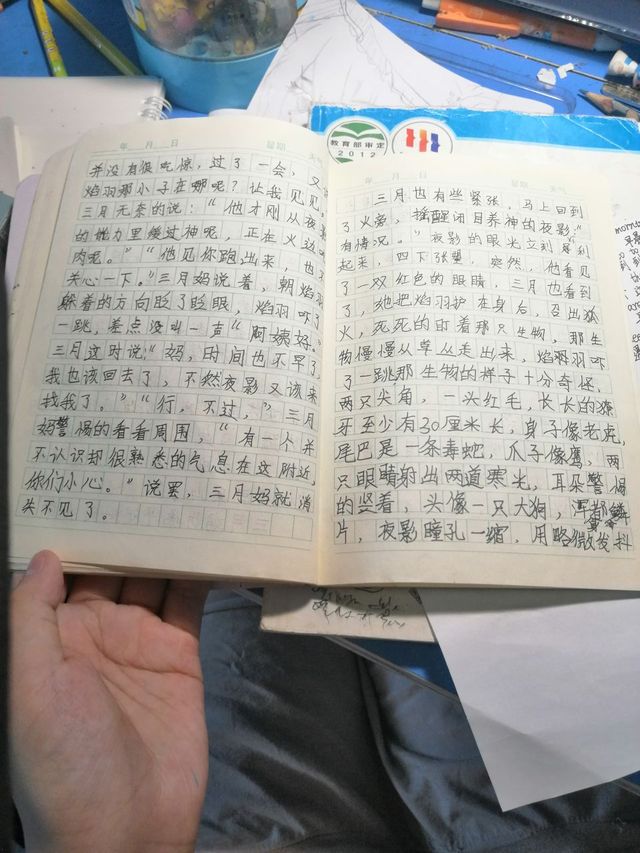 年 月 日 星期 天气
并没有很吃惊，过了一会，又
焰羽那小子在哪呢？让我见见。
三月无奈的说：“他才刚从夜影
的魅力里缓过神呢，正在火边
肉呢。”“他见你跑出来，也不
关心一下。”三月妈说着，朝焰羽
躲着的方向眨了眨眼，焰羽吓了
一跳，差点没叫一声“阿姨好。”
三月这时说：“妈，时间也不早了
我也该回去了，不然夜影又该来
找我了。”“行，不过，”三月
妈警惕的看看周围，“有一个并
不认识却很熟悉的气息在这附近，
你们小心。”说罢，三月妈就消
失不见了。
年 月 日 星期 天气
三月也有些紧张，马上回到
了火旁，摇醒闭目养神的夜影：“
有情况。”夜影的眼光立刻犀利
起来，四下张望，突然，他看见
了一双红色的眼睛，三月也看到
了，她把焰羽护在身后，召出狐
火，死死的盯着那只生物，那生
物慢慢从草丛走出来，焰羽吓
了一跳那生物的样子十分奇怪，
两只尖角，一头红毛，长长的獠
牙至少有30厘米长，身子像老虎，
尾巴是一条毒蛇，爪子像鹰，两
只眼睛射出两道寒光，耳朵警惕
的竖着，头像一只大狗，浑都鳞
片，夜影瞳孔一缩，用略微发抖
教育部审定
2012